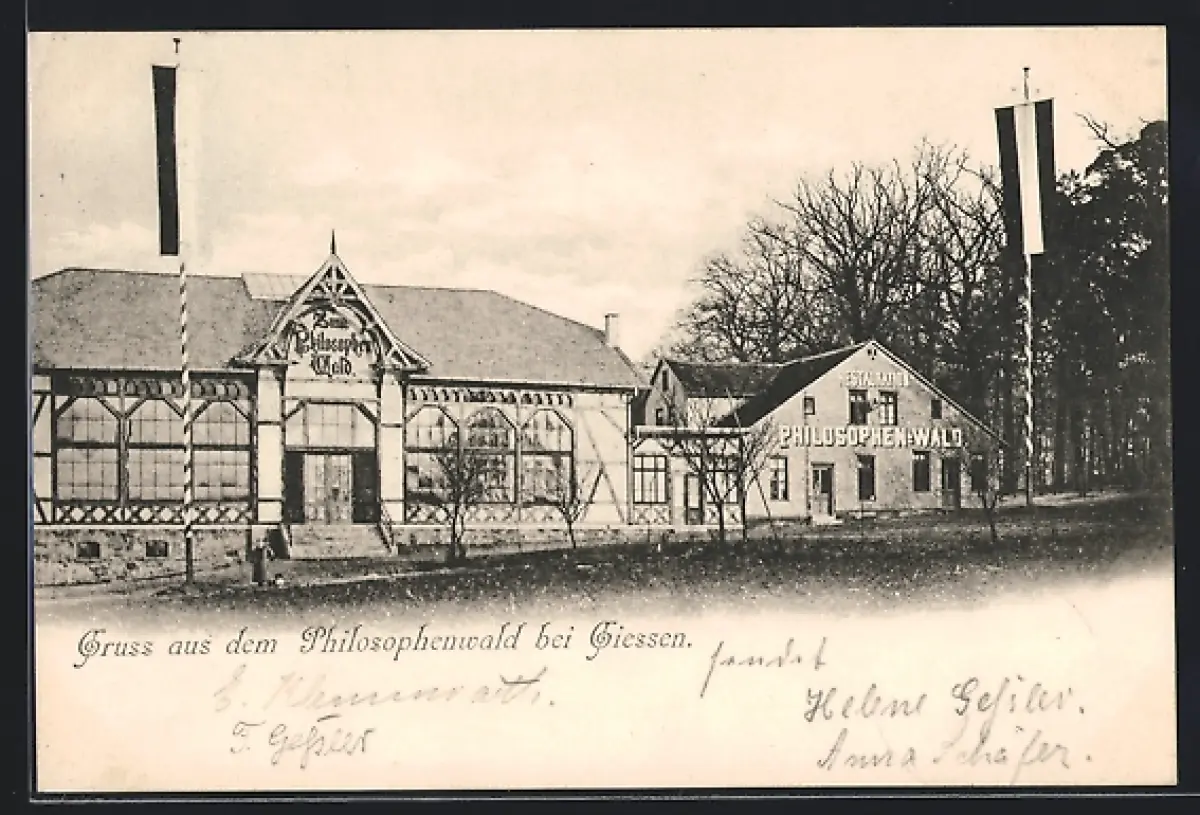 Zum
Philosophen
Wald.
RESTAURATION
PHILOSOPHEN-WALD.
Gruss aus dem Philosophenwald bei Giessen.
sendet
E. Klemmrath.
Helene Geßler.
T. Geßler
Anna Schäfer.